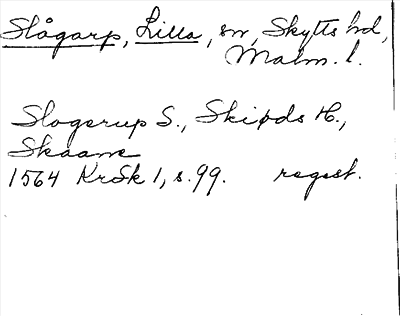 Slågarp, Lilla, sn, Skytts hd,
Malm. l.
Slogerup S., Skipds H.,
Skaane
1564 KrSk 1, s. 99. regest.